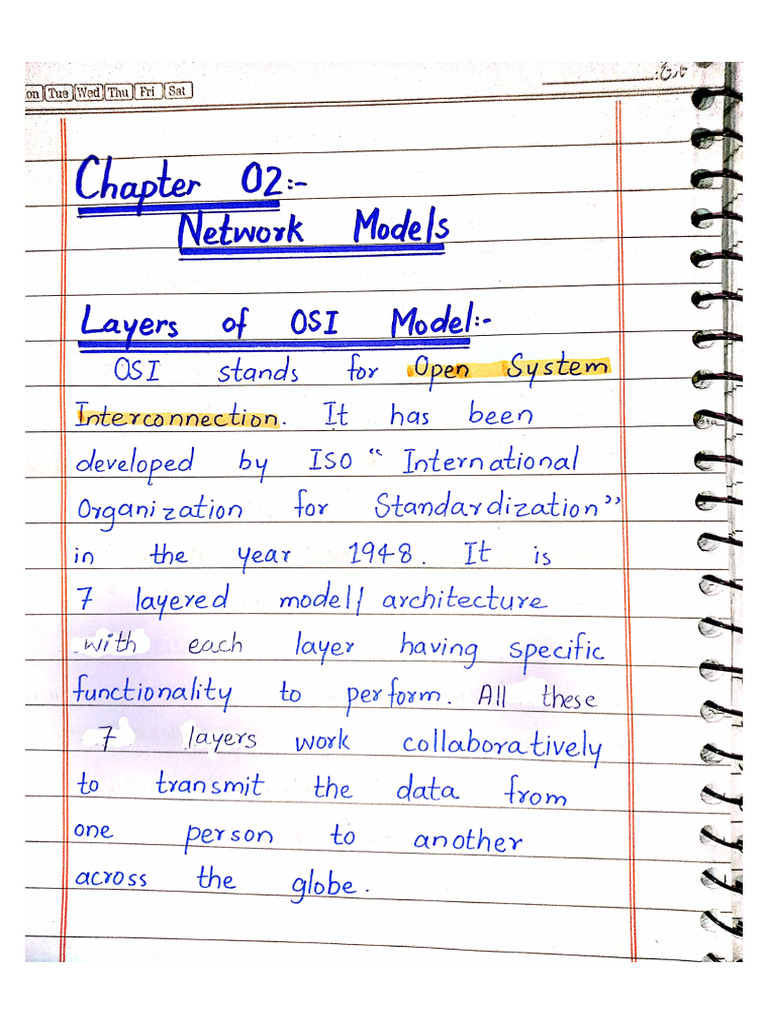 on Tue Wed Thu Fri Sat
تاریخ:
Chapter 02:-
Network Models
Layers of OSI Model:-
OSI stands for Open System
Interconnection. It has been
developed by ISO “ International
Organization for Standardization”
in the year 1948. It is
7 layered model/ architecture
with each layer having specific
functionality to perform. All these
7 layers work collaboratively
to transmit the data from
one person to another
across the globe.